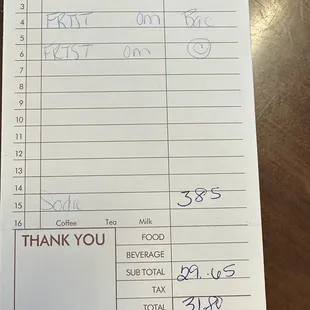 3
4 FRTST Om Bac
5
6 FRTST Om C
7
8
9
10
11
12
13
14
15 Soda 385
16 Coffee Tea Milk
THANK YOU
FOOD
BEVERAGE
SUB TOTAL 29.65
TAX
TOTAL 31.80